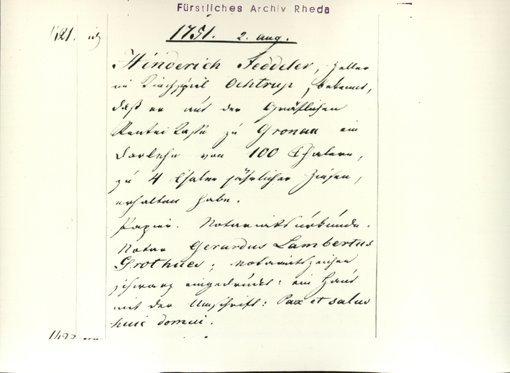 Fürstliches Archiv Rheda
1751. 2. Aug.
Hinderich Feddeler, Zeller
im Kirchspiel Ochtrup, bekennt,
daß er aus der Gräflichen
Rentei Kasse zu Gronau ein
Darlehn von 100 Thalern,
zu 4 Thaler jährlicher Zinsen,
erhalten habe.
Papier. Notariatsurkunde.
Notar Gerardus Lambertus
Grothues; Notariatszeichen
schwarz eingedrückt: ein Haus
mit der Umschrift: Pax et salus
huic domui.